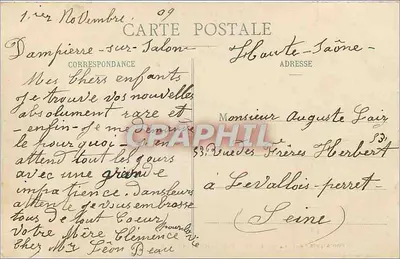 1.ier Novembre. 09
CARTE POSTALE
Dampierre-sur-Salon
Haute-Saône-
CORRESPONDANCE
ADRESSE
Mes chers enfants
Je trouve vos nouvelles
absolument rare et
-enfin-Je me demande
le pourquoi - on
attend tout les jours
avec une grande
impatience. Dans leurs
attente Je vous embrosse
tous de tout Coeur
votre Mère Clémence
Chez Mr Léon Beau
CPAPHIL
Monsieur Auguste Loir
53 Rue des Frères Herbert
53
à Levallois-perret-
(Seine)